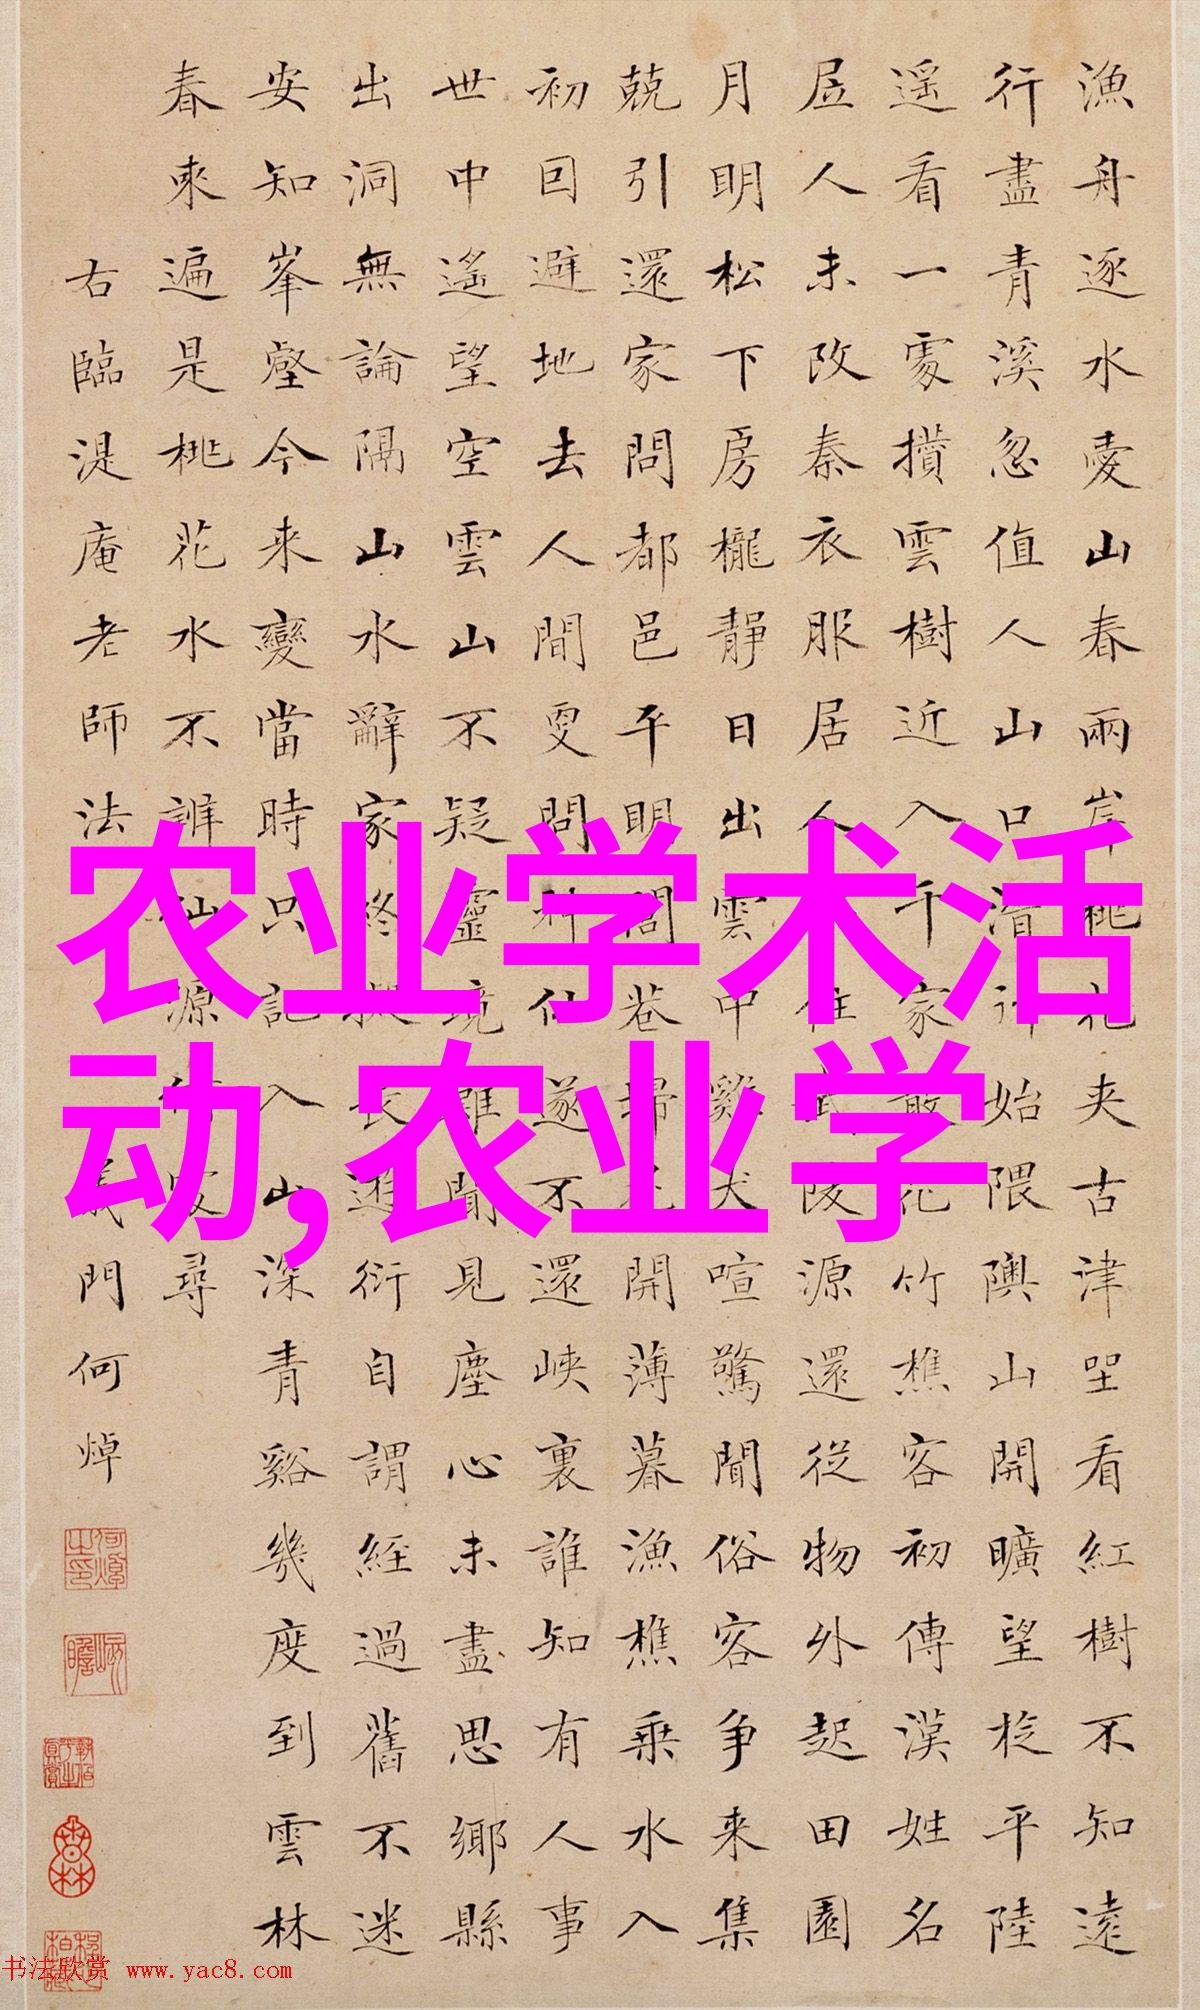 漁舟逐水愛山春兩岸桃花夹古津坐看紅樹不知遠
行盡青溪忽值人山口潛行始隈隩山開曠望旋平陸
遥看一處攢雲樹近入千家散花竹樵客初傳漢姓名
居人未改秦衣服居人住武陵源還從物外起田園
月明松下房櫳靜日出雲中雞犬喧驚聞俗客争来集
兢引還家問都邑平明閭巷掃花開薄暮漁樵乗水入
初回避地去人間更問神仙遂不還峽裏誰知有人事
世中遙望空雲山不疑靈境難聞見塵心未盡思鄉縣
出洞無論隔山水辭家終擬長遊衍自謂經過舊不迷
安知峯壑今来變當時只記入山深青谿幾度到雲林
春來遍是桃花水不辨仙源何處尋
右臨湜庵老師法義門何焯
农业学术活
动,农业学
书法欣赏 www.yac8.com